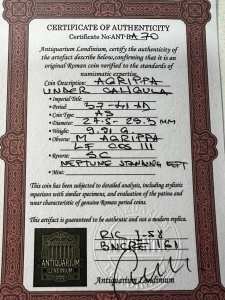 CERTIFICATE OF AUTHENTICITY
Certificate No: ANT-BA70
Antiquarium Londinium, certify the authenticity
of the artefact describe below, confirming that it is an
original Roman coin verified to the standards of
numismatic expertise.
Coin Description: AGRIPPA
UNDER CALIGULA
• Imperial Title:
• Period: 37-41 AD
• Coin Type: AS
• Diameter: 27.5-28.5 mm
• Weight: 9.91 G
• Obverse: M AGRIPPA
LF COS III
• Reverse: SC
NEPTUNE STANDING LEFT
• Mint:
This coin has been subjected to detailed analysis, including stylistic
comparison with similar specimens, and evaluation of the patina and
wear characteristic of genuine Roman period coins.
This artifact is guaranteed to be authentic and not a modern replica.
RIC I-58
BMCRE 161
ANTIQUARIUM
LONDINIUM
Antiquarium Londinium